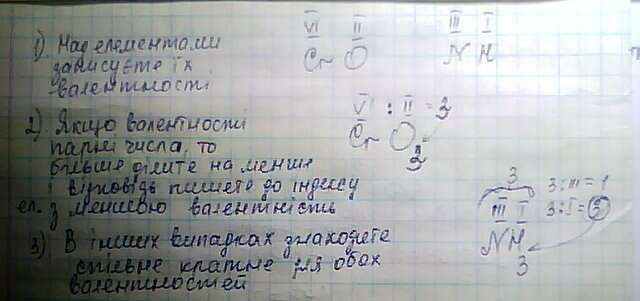 VI II III I
1) Над елементами Cr O N H
записуєте їх
валентності
VI : II = 3
2) Якщо валентності Cr O
парні числа, то 3
більше ділите на менше
і відповідь пишете до індексу
ел. з меншою валентність
3 3:III=1
III I 3:I=3
3) В інших випадках знаходете NH
спільне кратне для обох 3
валентностей